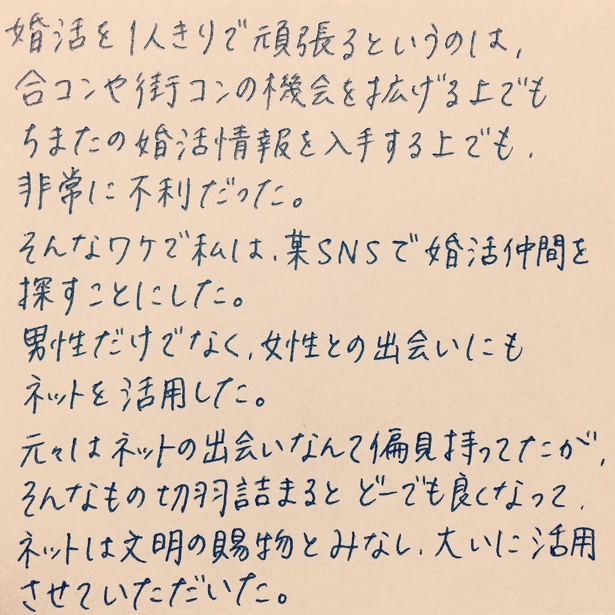 婚活を1人きりで頑張るというのは、
合コンや街コンの機会を拡げる上でも
ちまたの婚活情報を入手する上でも、
非常に不利だった。
そんなワケで私は、某SNSで婚活仲間を
探すことにした。
男性だけでなく、女性との出会いにも
ネットを活用した。
元々はネットの出会いなんて偏見持ってたが、
そんなもの切羽詰まるとどーでも良くなって、
ネットは文明の賜物とみなし、大いに活用
させていただいた。